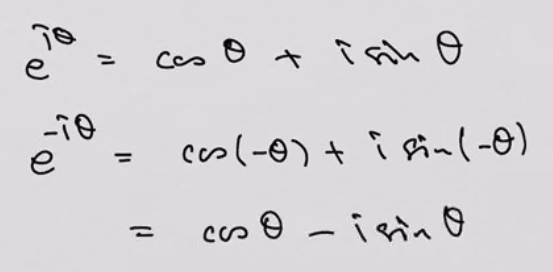 e^{iθ} = cos θ + i sin θ
e^{-iθ} = cos(-θ) + i sin(-θ)
= cos θ - i sin θ